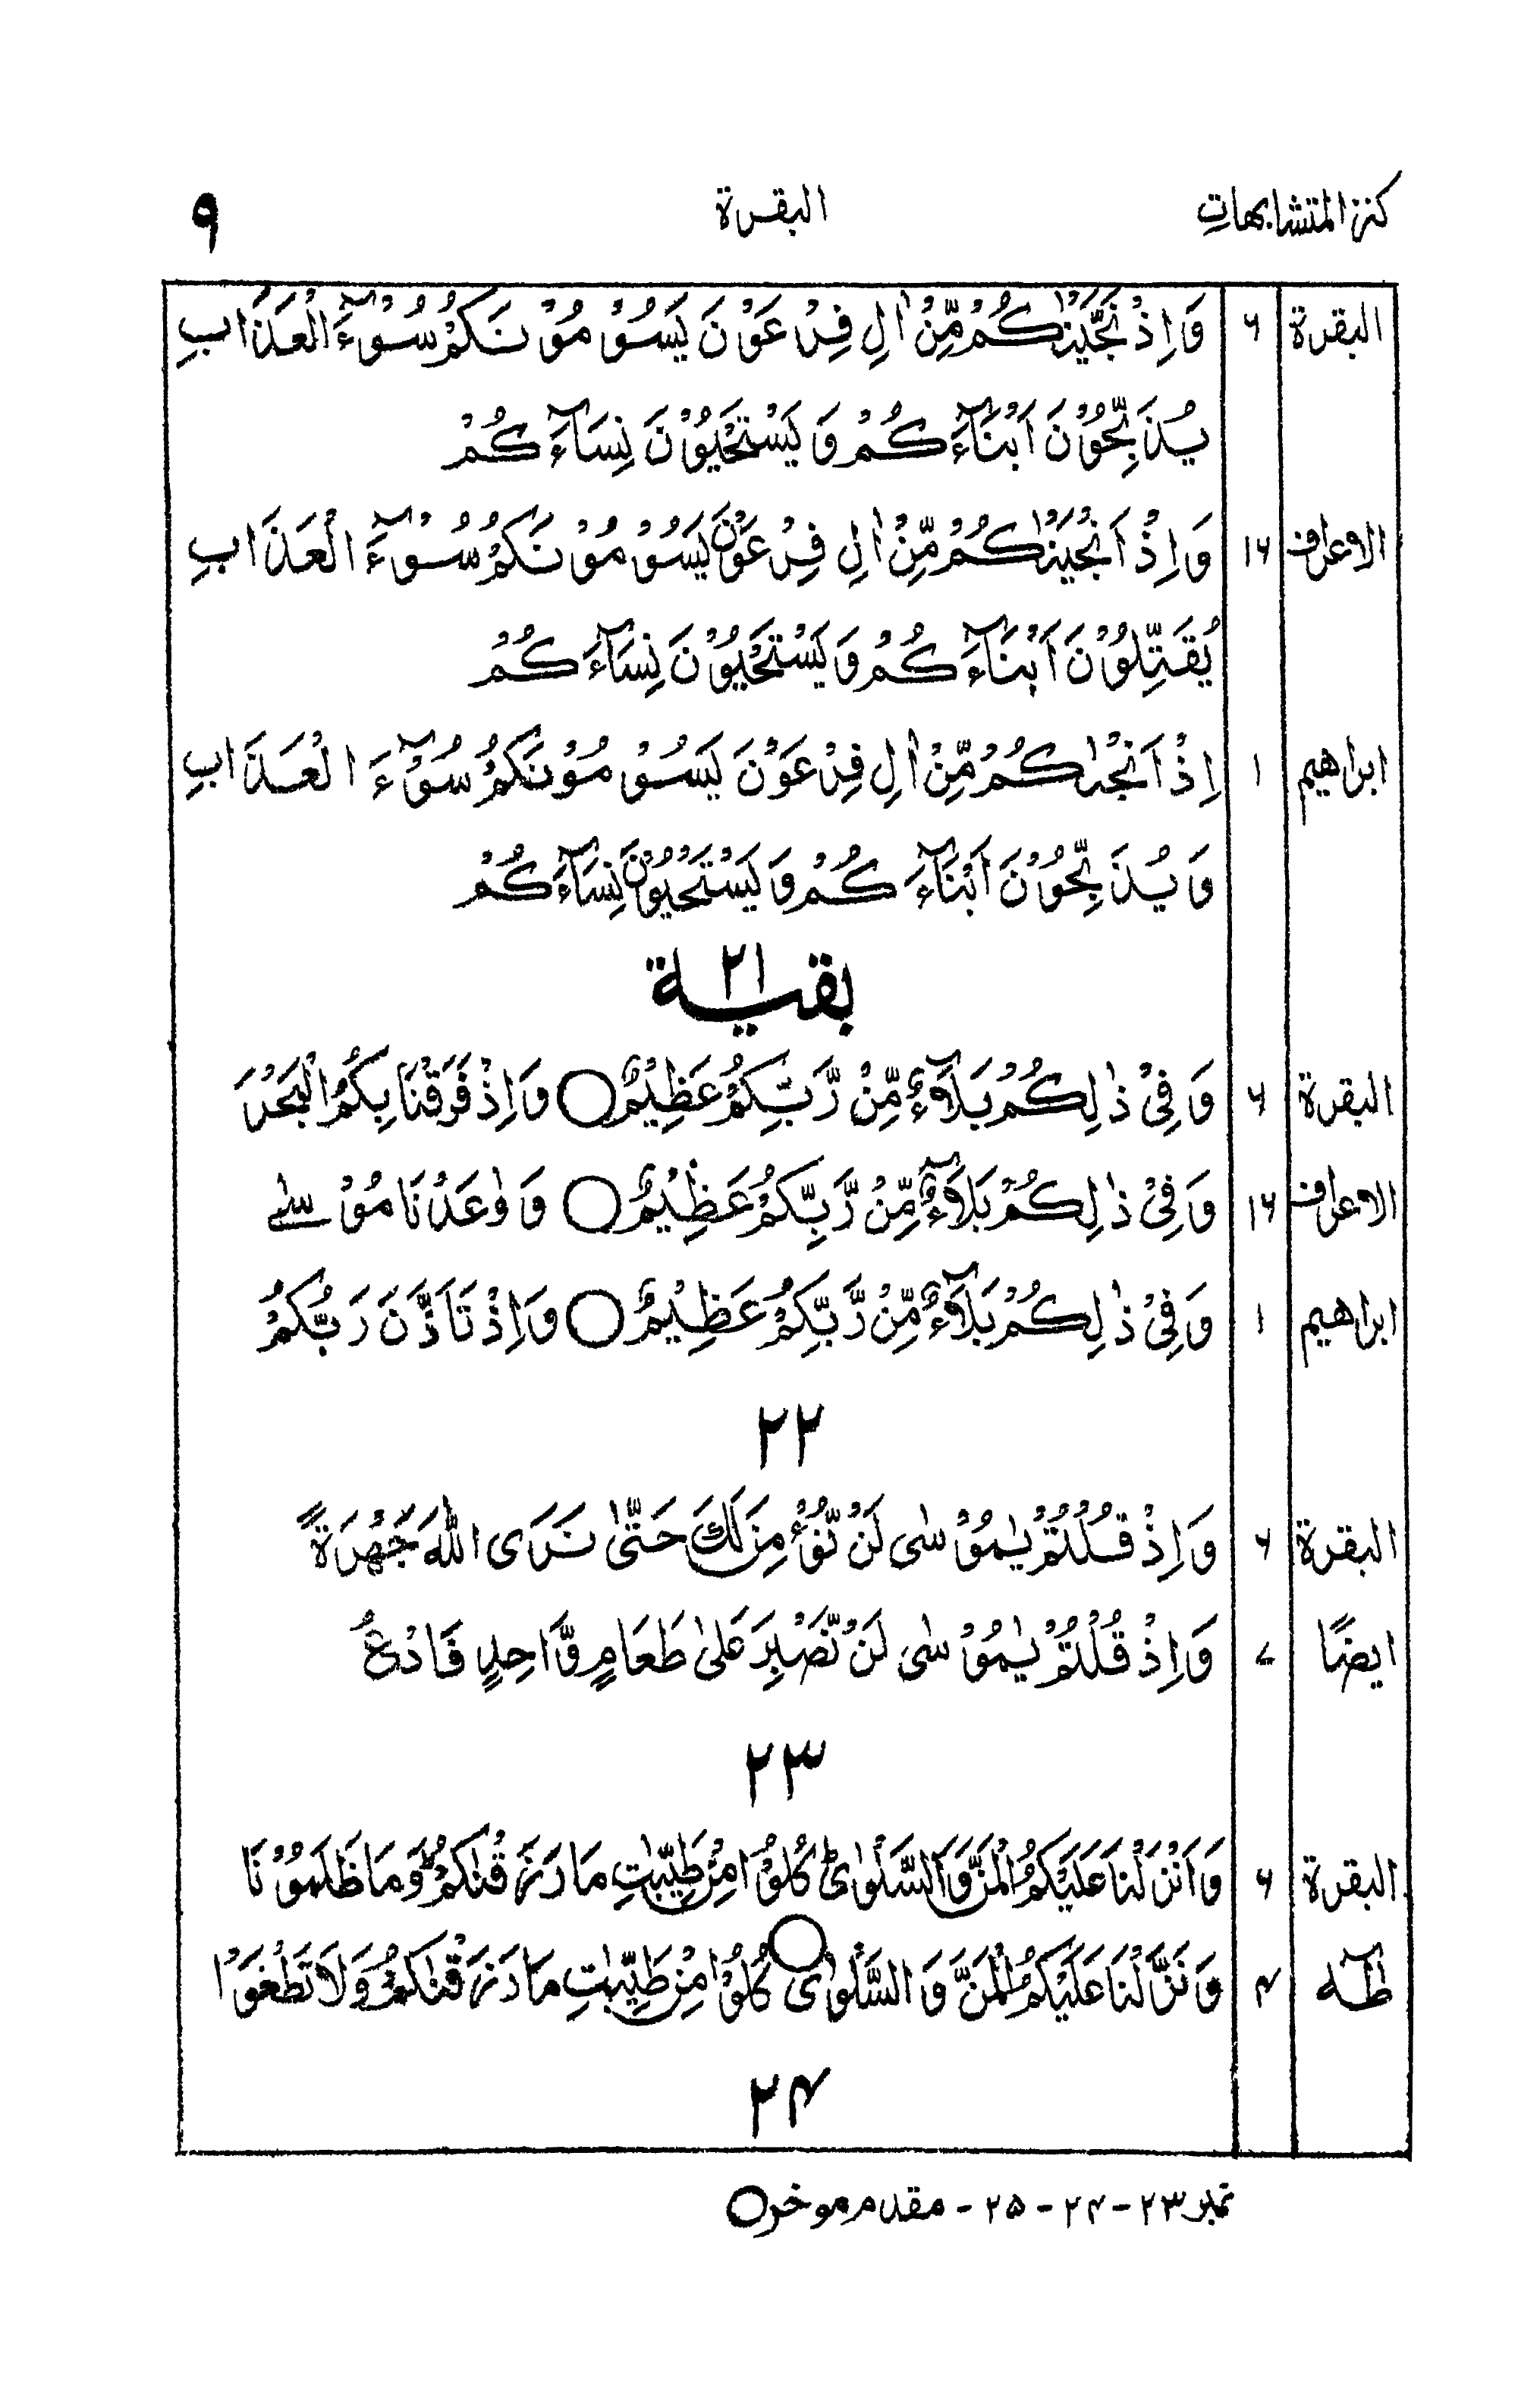 كنز المتشابهات البقرة ۹
البقرة ۶ وَاِذْ نَجَّيْنٰكُمْ مِّنْ اٰلِ فِرْعَوْنَ يَسُوْمُوْنَكُمْ سُوْٓءَ الْعَذَابِ
يُذَبِّحُوْنَ اَبْنَآءَكُمْ وَيَسْتَحْيُوْنَ نِسَآءَكُمْ
الاعراف ۱۶ وَاِذْ اَنْجَيْنٰكُمْ مِّنْ اٰلِ فِرْعَوْنَ يَسُوْمُوْنَكُمْ سُوْٓءَ الْعَذَابِ
يُقَتِّلُوْنَ اَبْنَآءَكُمْ وَيَسْتَحْيُوْنَ نِسَآءَكُمْ
ابراهيم ۱ اِذْ اَنْجٰىكُمْ مِّنْ اٰلِ فِرْعَوْنَ يَسُوْمُوْنَكُمْ سُوْٓءَ الْعَذَابِ
وَيُذَبِّحُوْنَ اَبْنَآءَكُمْ وَيَسْتَحْيُوْنَ نِسَآءَكُمْ
بقية ۲۱
البقرة ۶ وَفِيْ ذٰلِكُمْ بَلَآءٌ مِّنْ رَّبِّكُمْ عَظِيْمٌ ○ وَاِذْ فَرَقْنَا بِكُمُ الْبَحْرَ
الاعراف ۱۶ وَفِيْ ذٰلِكُمْ بَلَآءٌ مِّنْ رَّبِّكُمْ عَظِيْمٌ ○ وَوٰعَدْنَا مُوْسٰے
ابراهيم ۱ وَفِيْ ذٰلِكُمْ بَلَآءٌ مِّنْ رَّبِّكُمْ عَظِيْمٌ ○ وَاِذْ تَاَذَّنَ رَبُّكُمْ
۲۲
البقرة ۶ وَاِذْ قُلْتُمْ يٰمُوْسٰى لَنْ نُّؤْمِنَ لَكَ حَتّٰى نَرَى اللّٰهَ جَهْرَةً
ايضًا ۷ وَاِذْ قُلْتُمْ يٰمُوْسٰى لَنْ نَّصْبِرَ عَلٰى طَعَامٍ وَّاحِدٍ فَادْعُ
۲۳
البقرة ۶ وَاَنْزَلْنَا عَلَيْكُمُ الْمَنَّ وَالسَّلْوٰىؕ كُلُوْا مِنْ طَيِّبٰتِ مَا رَزَقْنٰكُمْؕ وَمَا ظَلَمُوْنَا
طٰهٰ ۴ وَنَزَّلْنَا عَلَيْكُمُ الْمَنَّ وَالسَّلْوٰى ○ كُلُوْا مِنْ طَيِّبٰتِ مَا رَزَقْنٰكُمْ وَلَا تَطْغَوْا
۲۴
نمبر ۲۳ - ۲۴ - ۲۵ - مقدم موخر ○